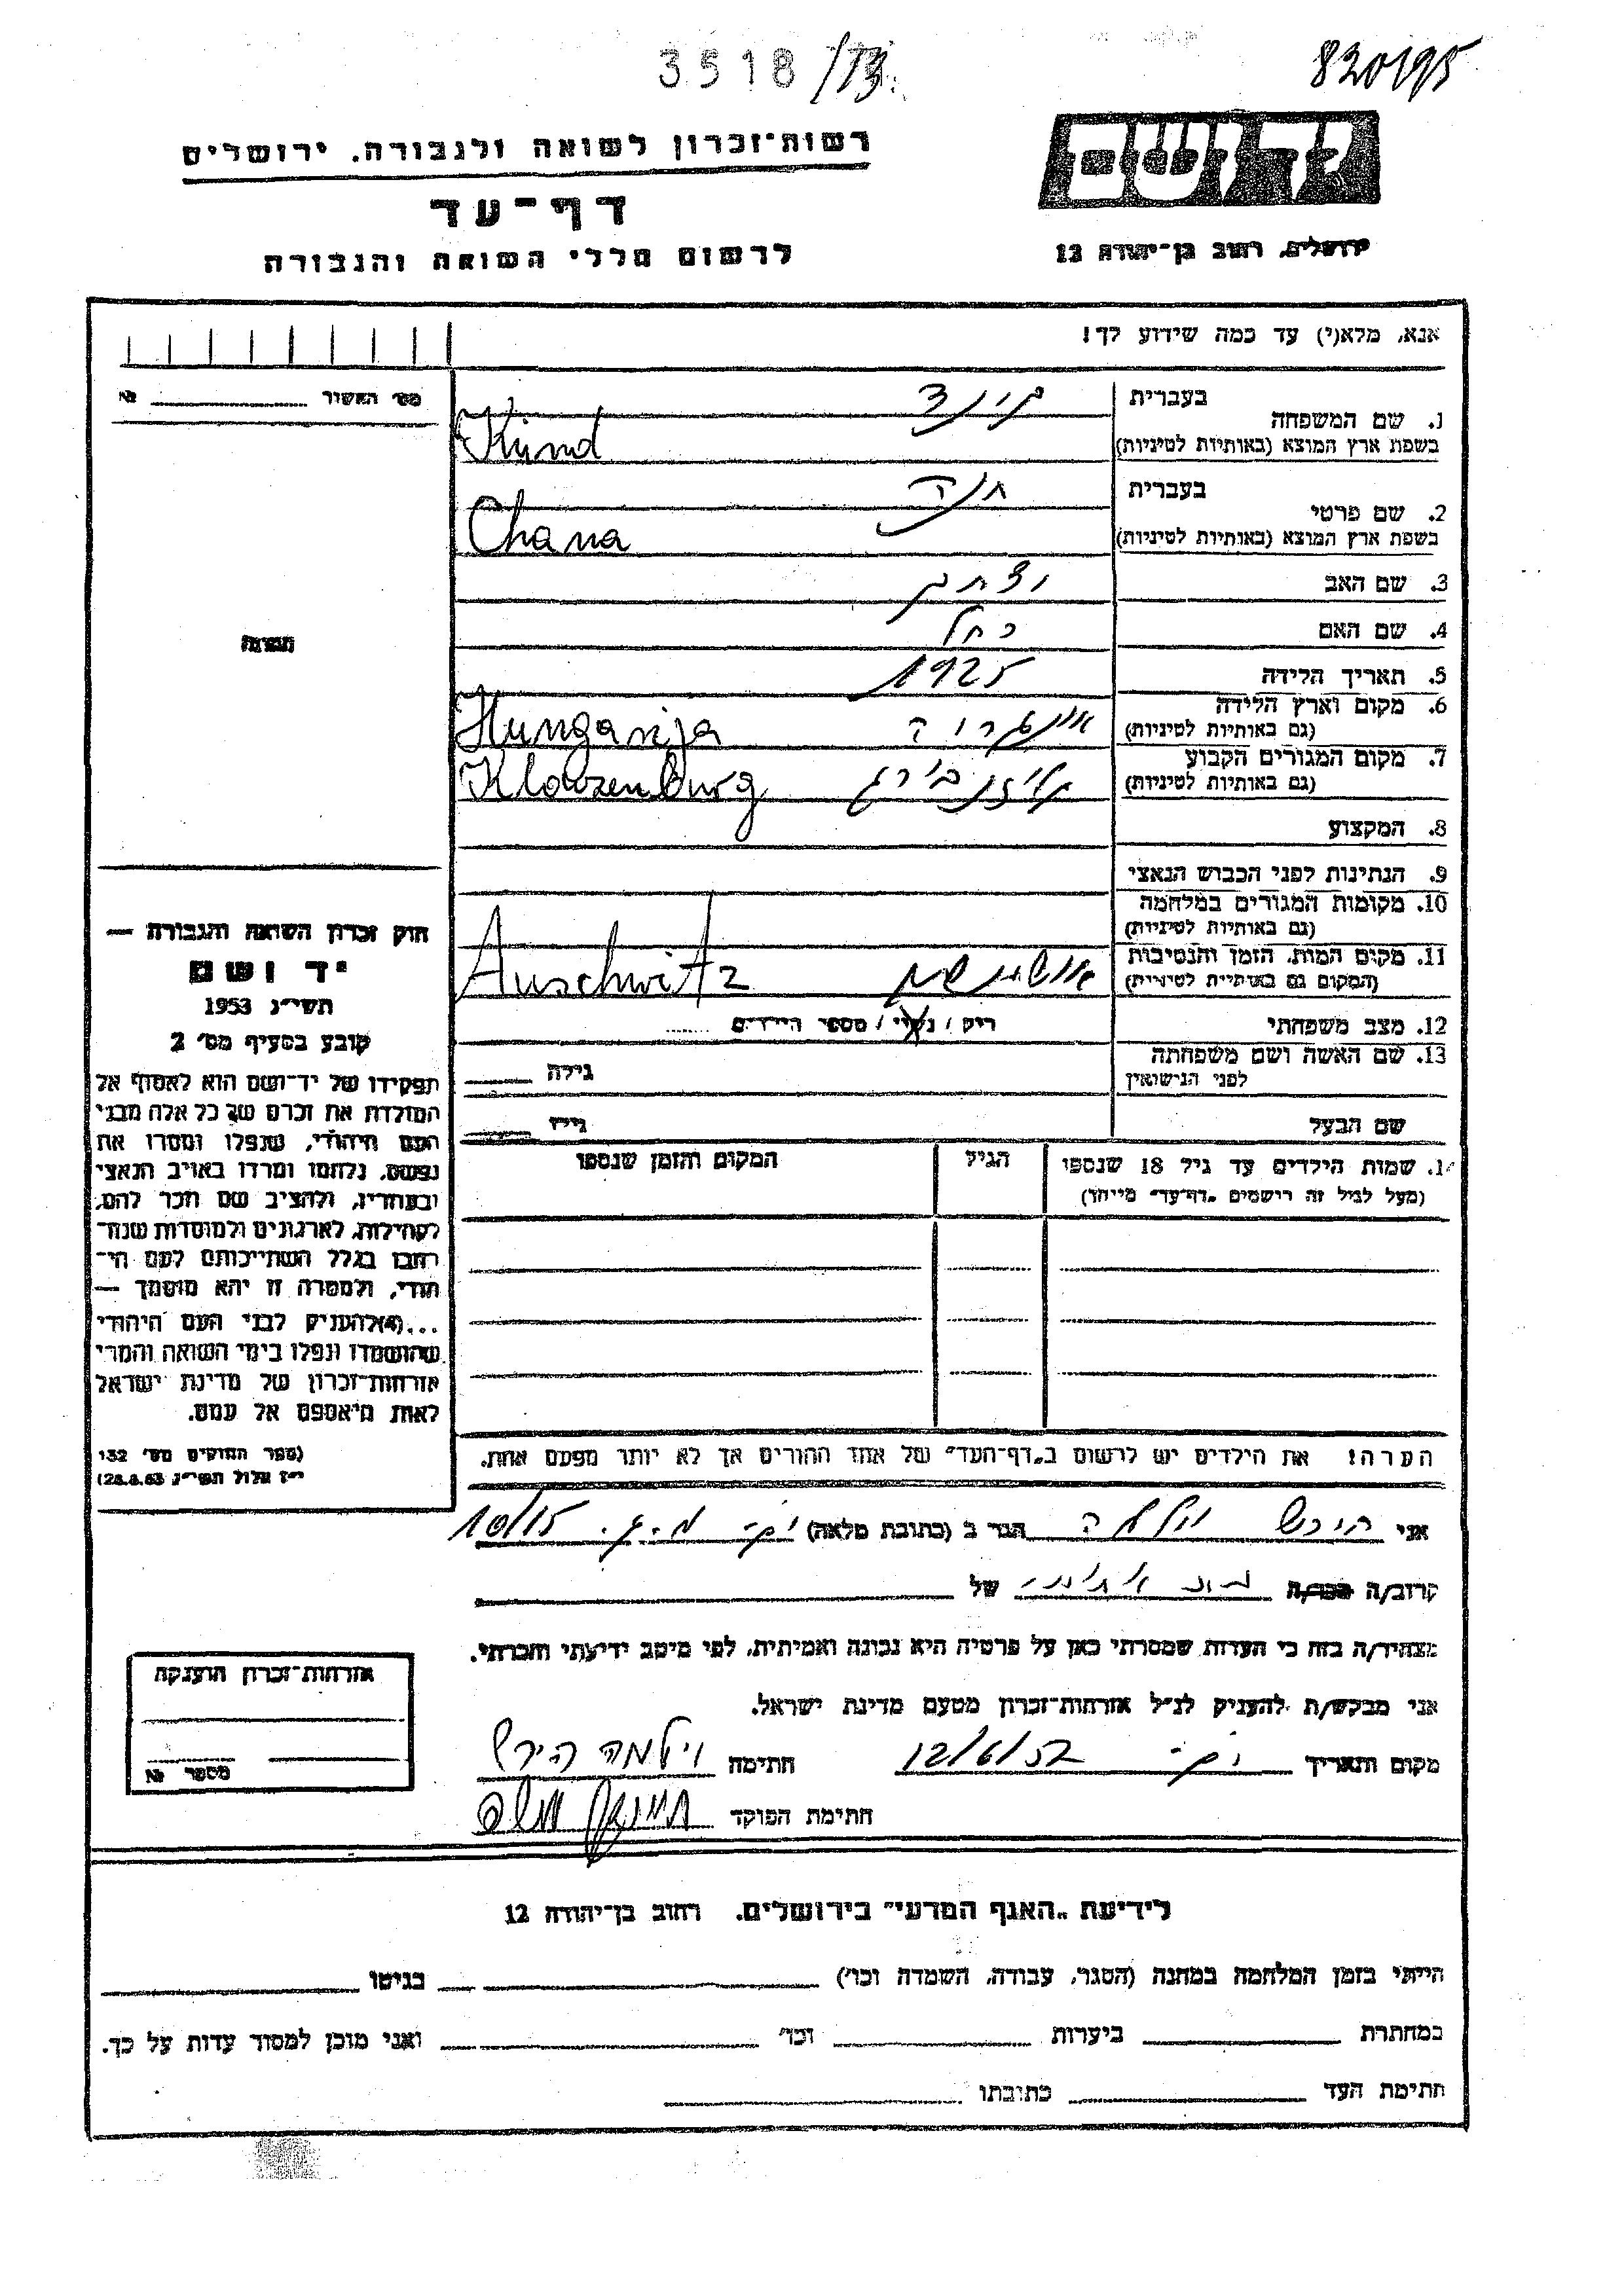 3518/73
820/95
רשות־זכרון לשואה ולגבורה. ירושלים
יד ושם
דף־עד
לרשום חללי השואה והגבורה
ירושלים, רחוב בן־יהודה 12
אנא, מלא(י) עד כמה שידוע לך!
מס׳ האשור № 
1. שם המשפחה
בעברית
קינד
בשפת ארץ המוצא (באותיות לטיניות)
Kind
2. שם פרטי
בעברית
חנה
בשפת ארץ המוצא (באותיות לטיניות)
Chana
3. שם האב
יצחק
4. שם האם
רחל
5. תאריך הלידה
1925
6. מקום וארץ הלידה
(גם באותיות לטיניות)
Hungarija
7. מקום המגורים הקבוע
(גם באותיות לטיניות)
Klauzenburg
8. המקצוע
9. הנתינות לפני הכבוש הנאצי
10. מקומות המגורים במלחמה
(גם באותיות לטיניות)
11. מקום המות, הזמן והנסיבות
(המקום גם באותיות לטיניות)
Auschwitz
12. מצב משפחתי
ריק / נשוי / מספר הילדים ......
13. שם האשה ושם משפחתה
לפני הנישואין
גילה
שם הבעל
גילו
14. שמות הילדים עד גיל 18 שנספו
(מעל לגיל זה רושמים „דף־עד״ מיוחד)
הגיל
המקום והזמן שנספו
תמונה
חוק זכרון השואה והגבורה —
יד ושם
תשי״ג 1953
קובע בסעיף מס׳ 2
תפקידו של יד־ושם הוא לאסוף אל
המולדת את זכרם של כל אלה מבני
העם היהודי, שנפלו ומסרו את
נפשם, נלחמו ומרדו באויב הנאצי
ובעוזריו, ולהציב שם וזכר להם,
לקהילות, לארגונים ולמוסדות שנח־
רבו בגלל השתייכותם לעם הי־
הודי, ולמטרה זו יהא מוסמך —
...(4)להעניק לבני העם היהודי
שהושמדו ונפלו בימי השואה והמרי
אזרחות־זכרון של מדינת ישראל
לאות היאספם אל עמם.
(ספר החוקים מס׳ 132
י״ז אלול תשי״ג 28.8.53)
הערה! את הילדים יש לרשום ב„דף־העד״ של אחד ההורים אך לא יותר מפעם אחת.
אני הירש וילמה הגר ב (כתובת מלאה) 10/15
קרוב/ה מכר/ה של
מצהיר/ה בזה כי העדות שמסרתי כאן על פרטיה היא נכונה ואמיתית, לפי מיטב ידיעתי והכרתי.
אני מבקש/ת להעניק לנ״ל אזרחות־זכרון מטעם מדינת ישראל.
מקום ותאריך 12/6/57 חתימה וילמה הירש
חתימת הפוקד
אזרחות־זכרון הוענקה
מספר №
לידיעת „האגף המדעי״ בירושלים. רחוב בן־יהודה 12
הייתי בזמן המלחמה במחנה (הסגר, עבודה, השמדה וכו׳) בגיטו
במחתרת ביערות וכו׳ ואני מוכן למסור עדות על כך.
חתימת העד כתובתו